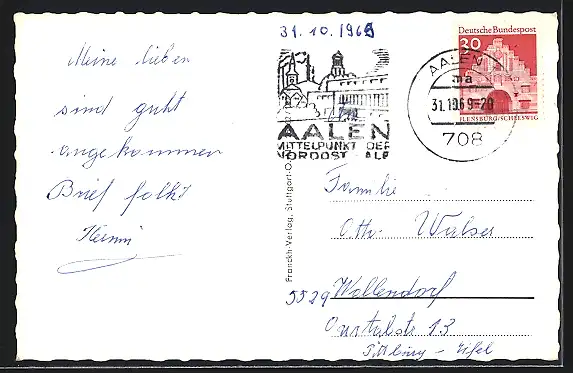 31.10.1969
Meine lieben
sind guht
angekommen
Brief folkt
Deutsche Bundespost
30
FLENSBURG/SCHLESWIG
AALEN
ma
31.10.69-20
708
AALEN
MITTELPUNKT DER
NORDOST ALB
Franckh-Verlag, Stuttgart-O
Familie
Otto Walser
5529 Wallendorf
Ourtalstr 13
Eifel